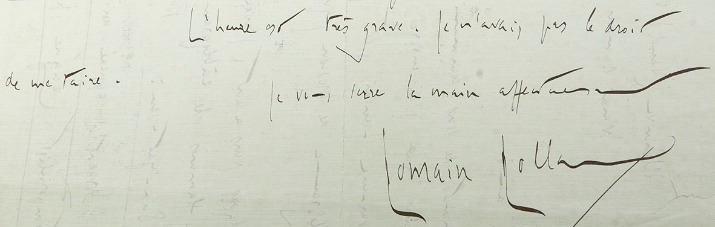 L'heure est très grave. Je n'avais pas le droit
de me taire.
Je vous serre la main affectueusement
Romain Rolland